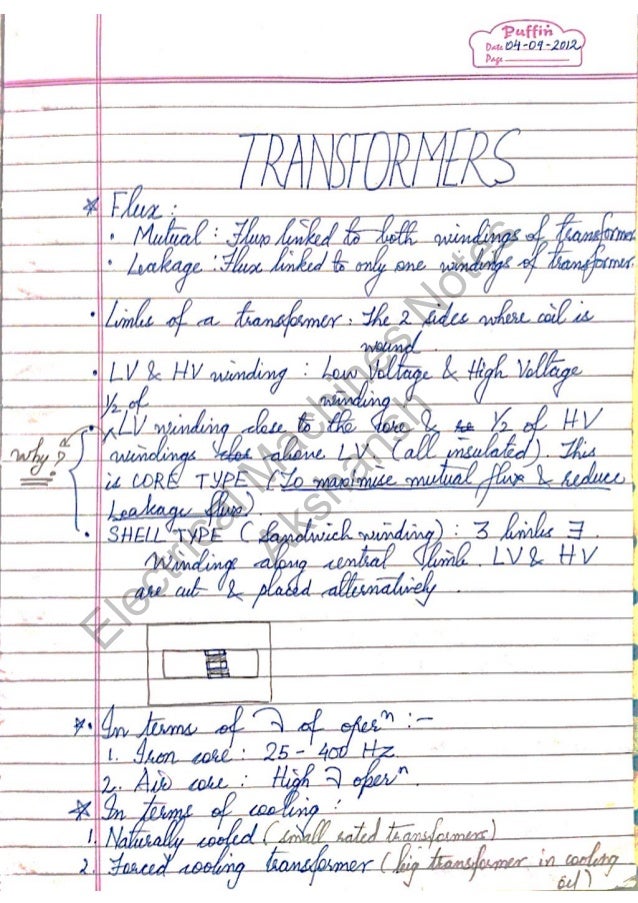 Puffin
Date 04-09-2012
Page
TRANSFORMERS
* Flux :
• Mutual : Flux linked to both windings of transformer.
• Leakage : Flux linked to only one windings of transformer.
• Limbs of a transformer : The 2 sides where coil is
wound.
• LV & HV winding : Low Voltage & High Voltage
winding
1/2 of
• LV winding close to the core & 1/2 of HV
Why?
windings above LV (all insulated). This
is CORE TYPE (To maximise mutual flux & reduce
Leakage flux)
• SHELL TYPE (Sandwich winding) : 3 limbs ∃.
Windings along central limb. LV & HV
are cut & placed alternatively.
*• In terms of of operⁿ :-
1. Iron core : 25 - 400 Hz.
2. Air core : High operⁿ.
* In terms of cooling :
1. Naturally cooled (small rated transformers)
2. Forced cooling transformer (big transformer in cooling
oil)
Electrical Machines Notes
Akshansh